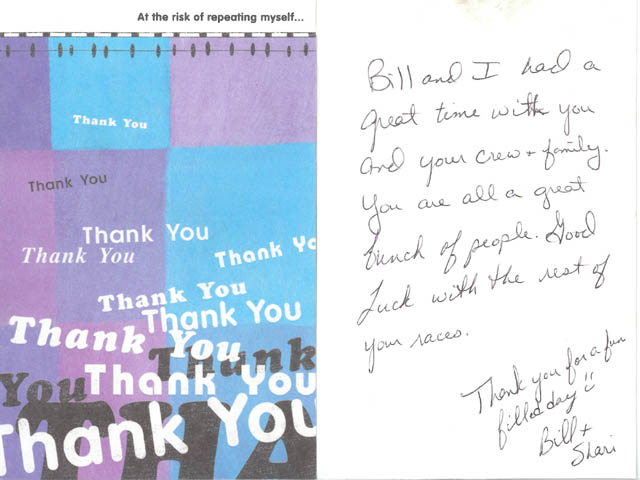 At the risk of repeating myself...
Thank You
Thank You
Thank You
Thank You
Thank Yo
Thank You
Thank You
Thank You
Thank
You
Thank You
THA
Thank You
Bill and I had a
great time with you
and your crew + family.
You are all a great
bunch of people. Good
Luck with the rest of
your races.
Thank you for a fun
filled day!
Bill +
Shari